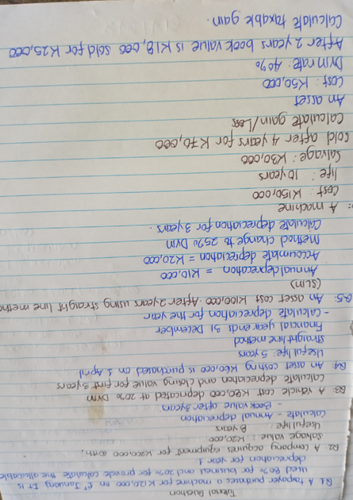 Tutorial Question
Q.1 A taxpayer purchases a machine for K120,000 on 1st January. It is
used for 80% for business and 20% for private calculate the allowable
depreciation for year 1
Q2 A company acquires equipment for K200,000,
Salvage value: K20,000
Useful life: 8 years
Calculate - Annual depreciation
- Book value after 3 years
Q3: A vehicle cost K80,000 depreciated at 20% Drm
Calculate depreciation and closing value for first 3 years
Q4 An asset costing K60,000 is purchased on 1 April
Useful life: 5 years
Straight line method
Financial year ends 31 December
- Calculate depreciation for the year
Q.5 An asset cost K100,000. After 2 years using straight line method
(SLM)
Annual depreciation = K10,000
Accumulate depreciation = K20,000
Method change to 25% Drm
Calculate depreciation for 3 years.
A machine
Cost K150,000
life: 10 years
Salvage: K30,000
Sold after 4 years for K70,000
Calculate gain/Loss
An asset
Cost: K50,000
Drm rate: 40%
After 2 years book value is K18,000 sold for K25,000
Calculate taxable gain.